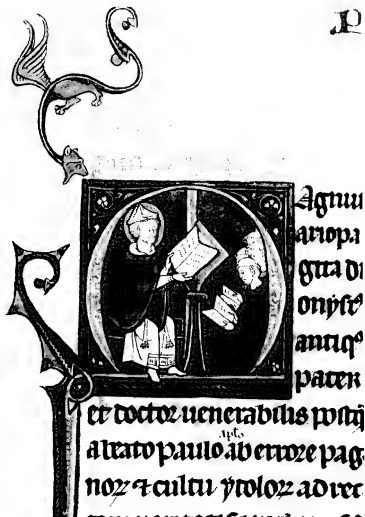 P
Agnus
ariopa
gita di
onysiꝰ
antiqꝰ
pater
et doctor uenerabilis postq̄
apl̄o
a beato paulo ab errore pag
noꝝ ⁊ cultu ydoloꝝ ad rect